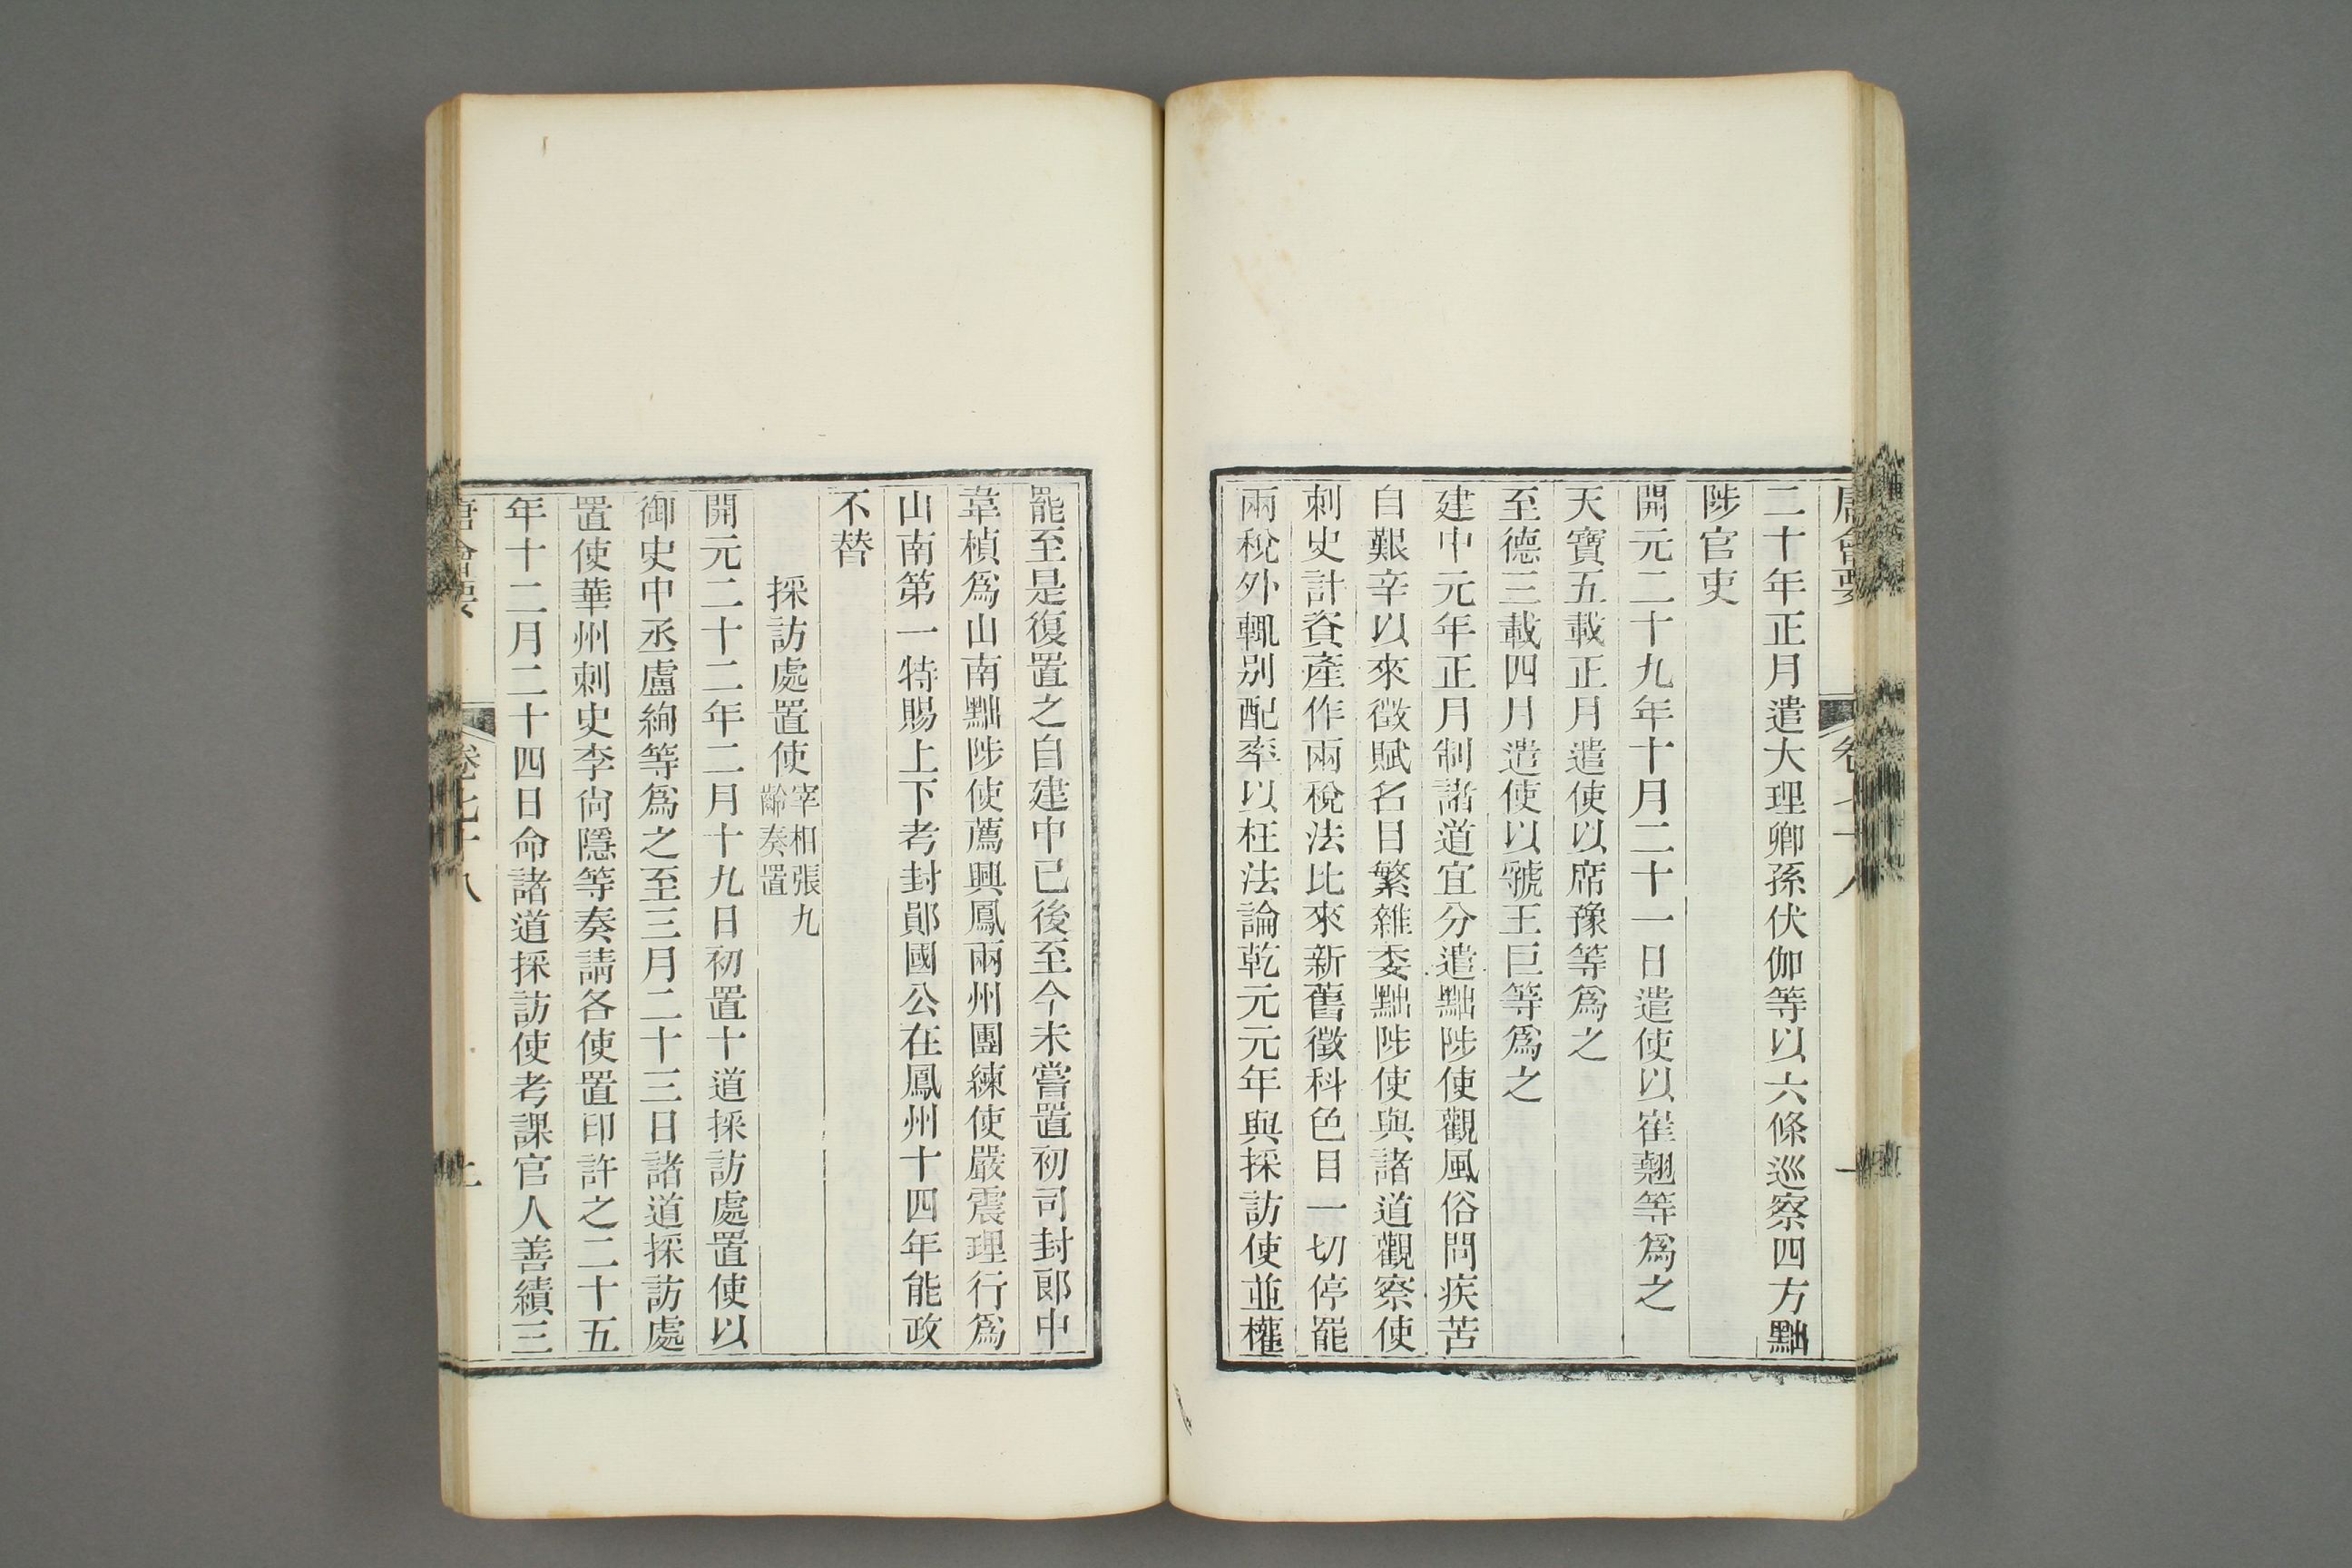 唐會要 卷七十八
二十年正月遣大理卿孫伏伽等以六條巡察四方黜
陟官吏
開元二十九年十月二十一日遣使以崔翹等爲之
天寶五載正月遣使以席豫等爲之
至德三載四月遣使以虢王巨等爲之
建中元年正月制諸道宜分遣黜陟使觀風俗問疾苦
自艱辛以來徵賦名目繁雜委黜陟使與諸道觀察使
刺史計資產作兩稅法比來新舊徵科色目一切停罷
兩稅外輒別配率以枉法論乾元元年與採訪使並權
罷至是復置之自建中已後至今未嘗置初司封郎中
韋楨爲山南黜陟使薦興鳳兩州團練使嚴震理行爲
山南第一特賜上下考封鄖國公在鳳州十四年能政
不替
採訪處置使
宰相張九
齡奏置
開元二十二年二月十九日初置十道採訪處置使以
御史中丞盧絢等爲之至三月二十三日諸道採訪處
置使華州刺史李尙隱等奏請各使置印許之二十五
年十二月二十四日命諸道採訪使考課官人善績三
唐會要 卷七十八